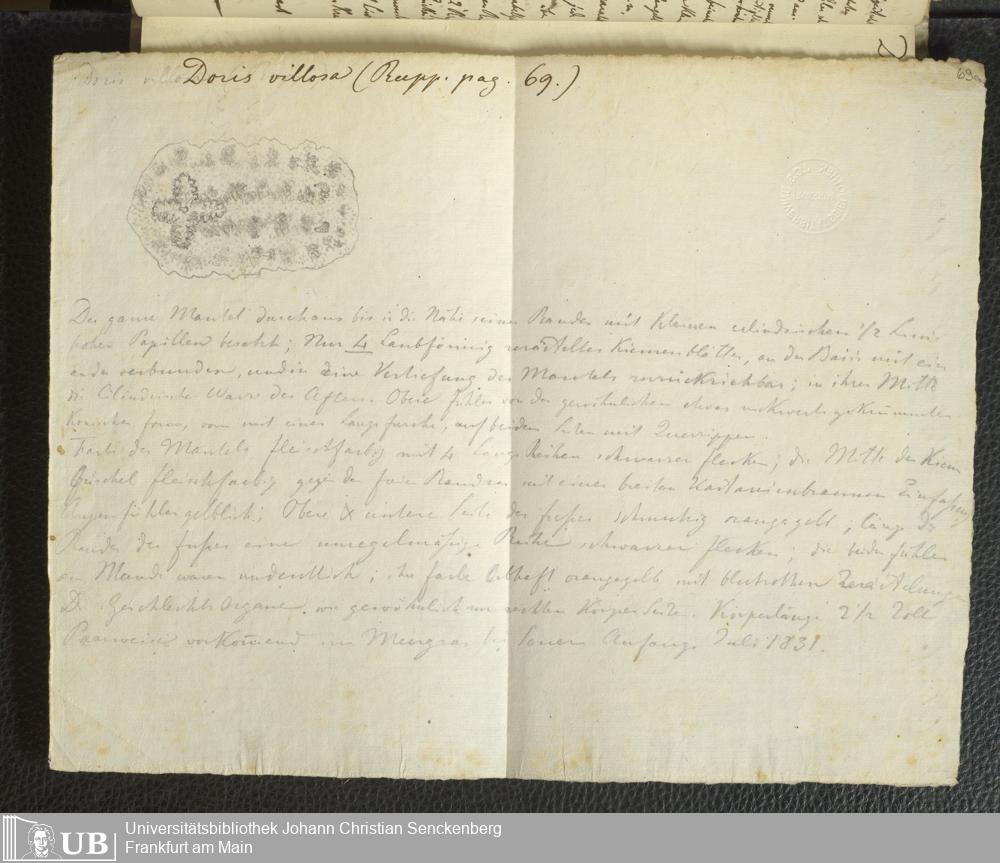 Doris villosa (Rupp. pag. 69.)
69
Der ganze Mantel durchaus bis in die Nähe seines Randes mit kleinen cilindrischen 1/2 Linie
hohen Papillen besetzt; Nur 4 Laubförmig verästelte Kiemenblätter, an der Basis mit ein
ander verbunden, und in eine Vertiefung des Mantels zurückziehbar; in ihrer Mitte
die Cilindrische Warze des Afters. Obere fühler von der gewöhnlichen etwas gekrümmten
Konischen form, vorn mit einer Langsfurche, auf beiden Seiten mit Querrippen.
Farbe des Mantels fleischfarbig mit 4 Langs Reihen schwarzer flecken; die Mitte der Kiem
büschel fleischfarbig gegen den freien Rand mit einer breiten Kastanienbraunen Einfaßung
fühler gelblich; Obere & untere Seite des fußes schmutzig orangegelb; längs des
Randes des fußes eine unregelmäßige Reihe schwarzer flecken; die beiden fühler
am Munde waren undeutlich; ihre farbe lebhaft orangegelb mit blutrothen Verästelungen
Die Geschlechts Organe wie gewöhnlich an rechten Körper Seite. Körperlänge 2 1/2 Zoll
Paarweise vorkom̄end im Meergras bei Anfangs Juli 1831.
UB
Universitätsbibliothek Johann Christian Senckenberg
Frankfurt am Main